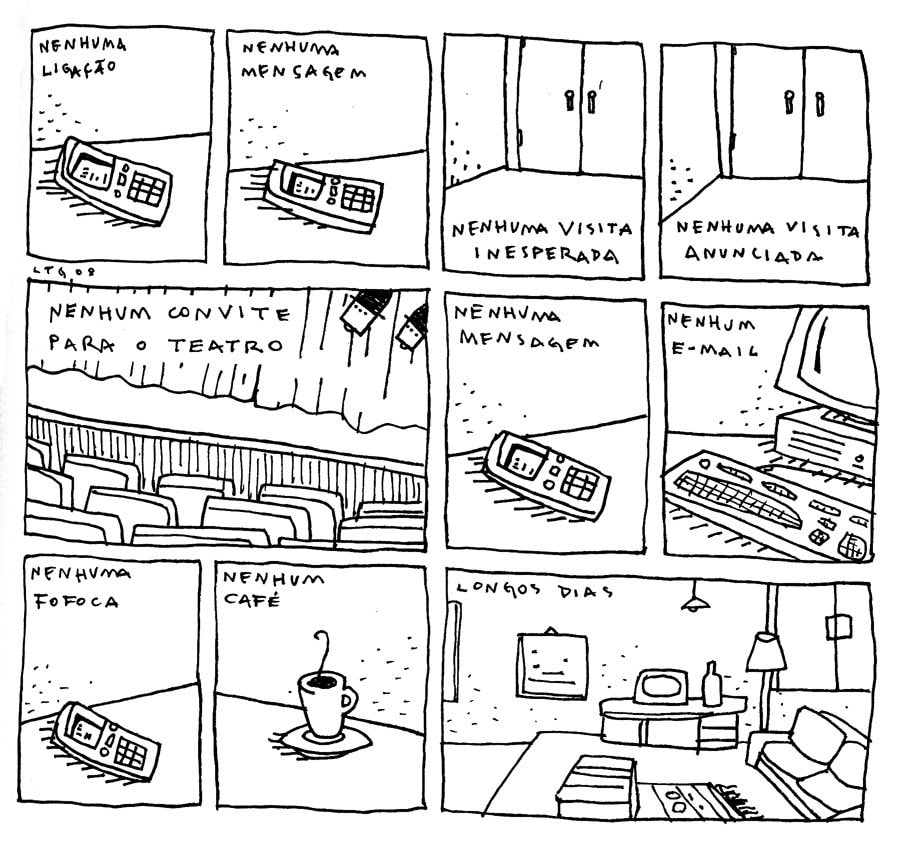 NENHUMA
LIGAÇÃO
NENHUMA
MENSAGEM
NENHUMA VISITA
INESPERADA
NENHUMA VISITA
ANUNCIADA
LTG 08
NENHUM CONVITE
PARA O TEATRO
NENHUMA
MENSAGEM
NENHUM
E-MAIL
NENHUMA
FOFOCA
NENHUM
CAFÉ
LONGOS DIAS